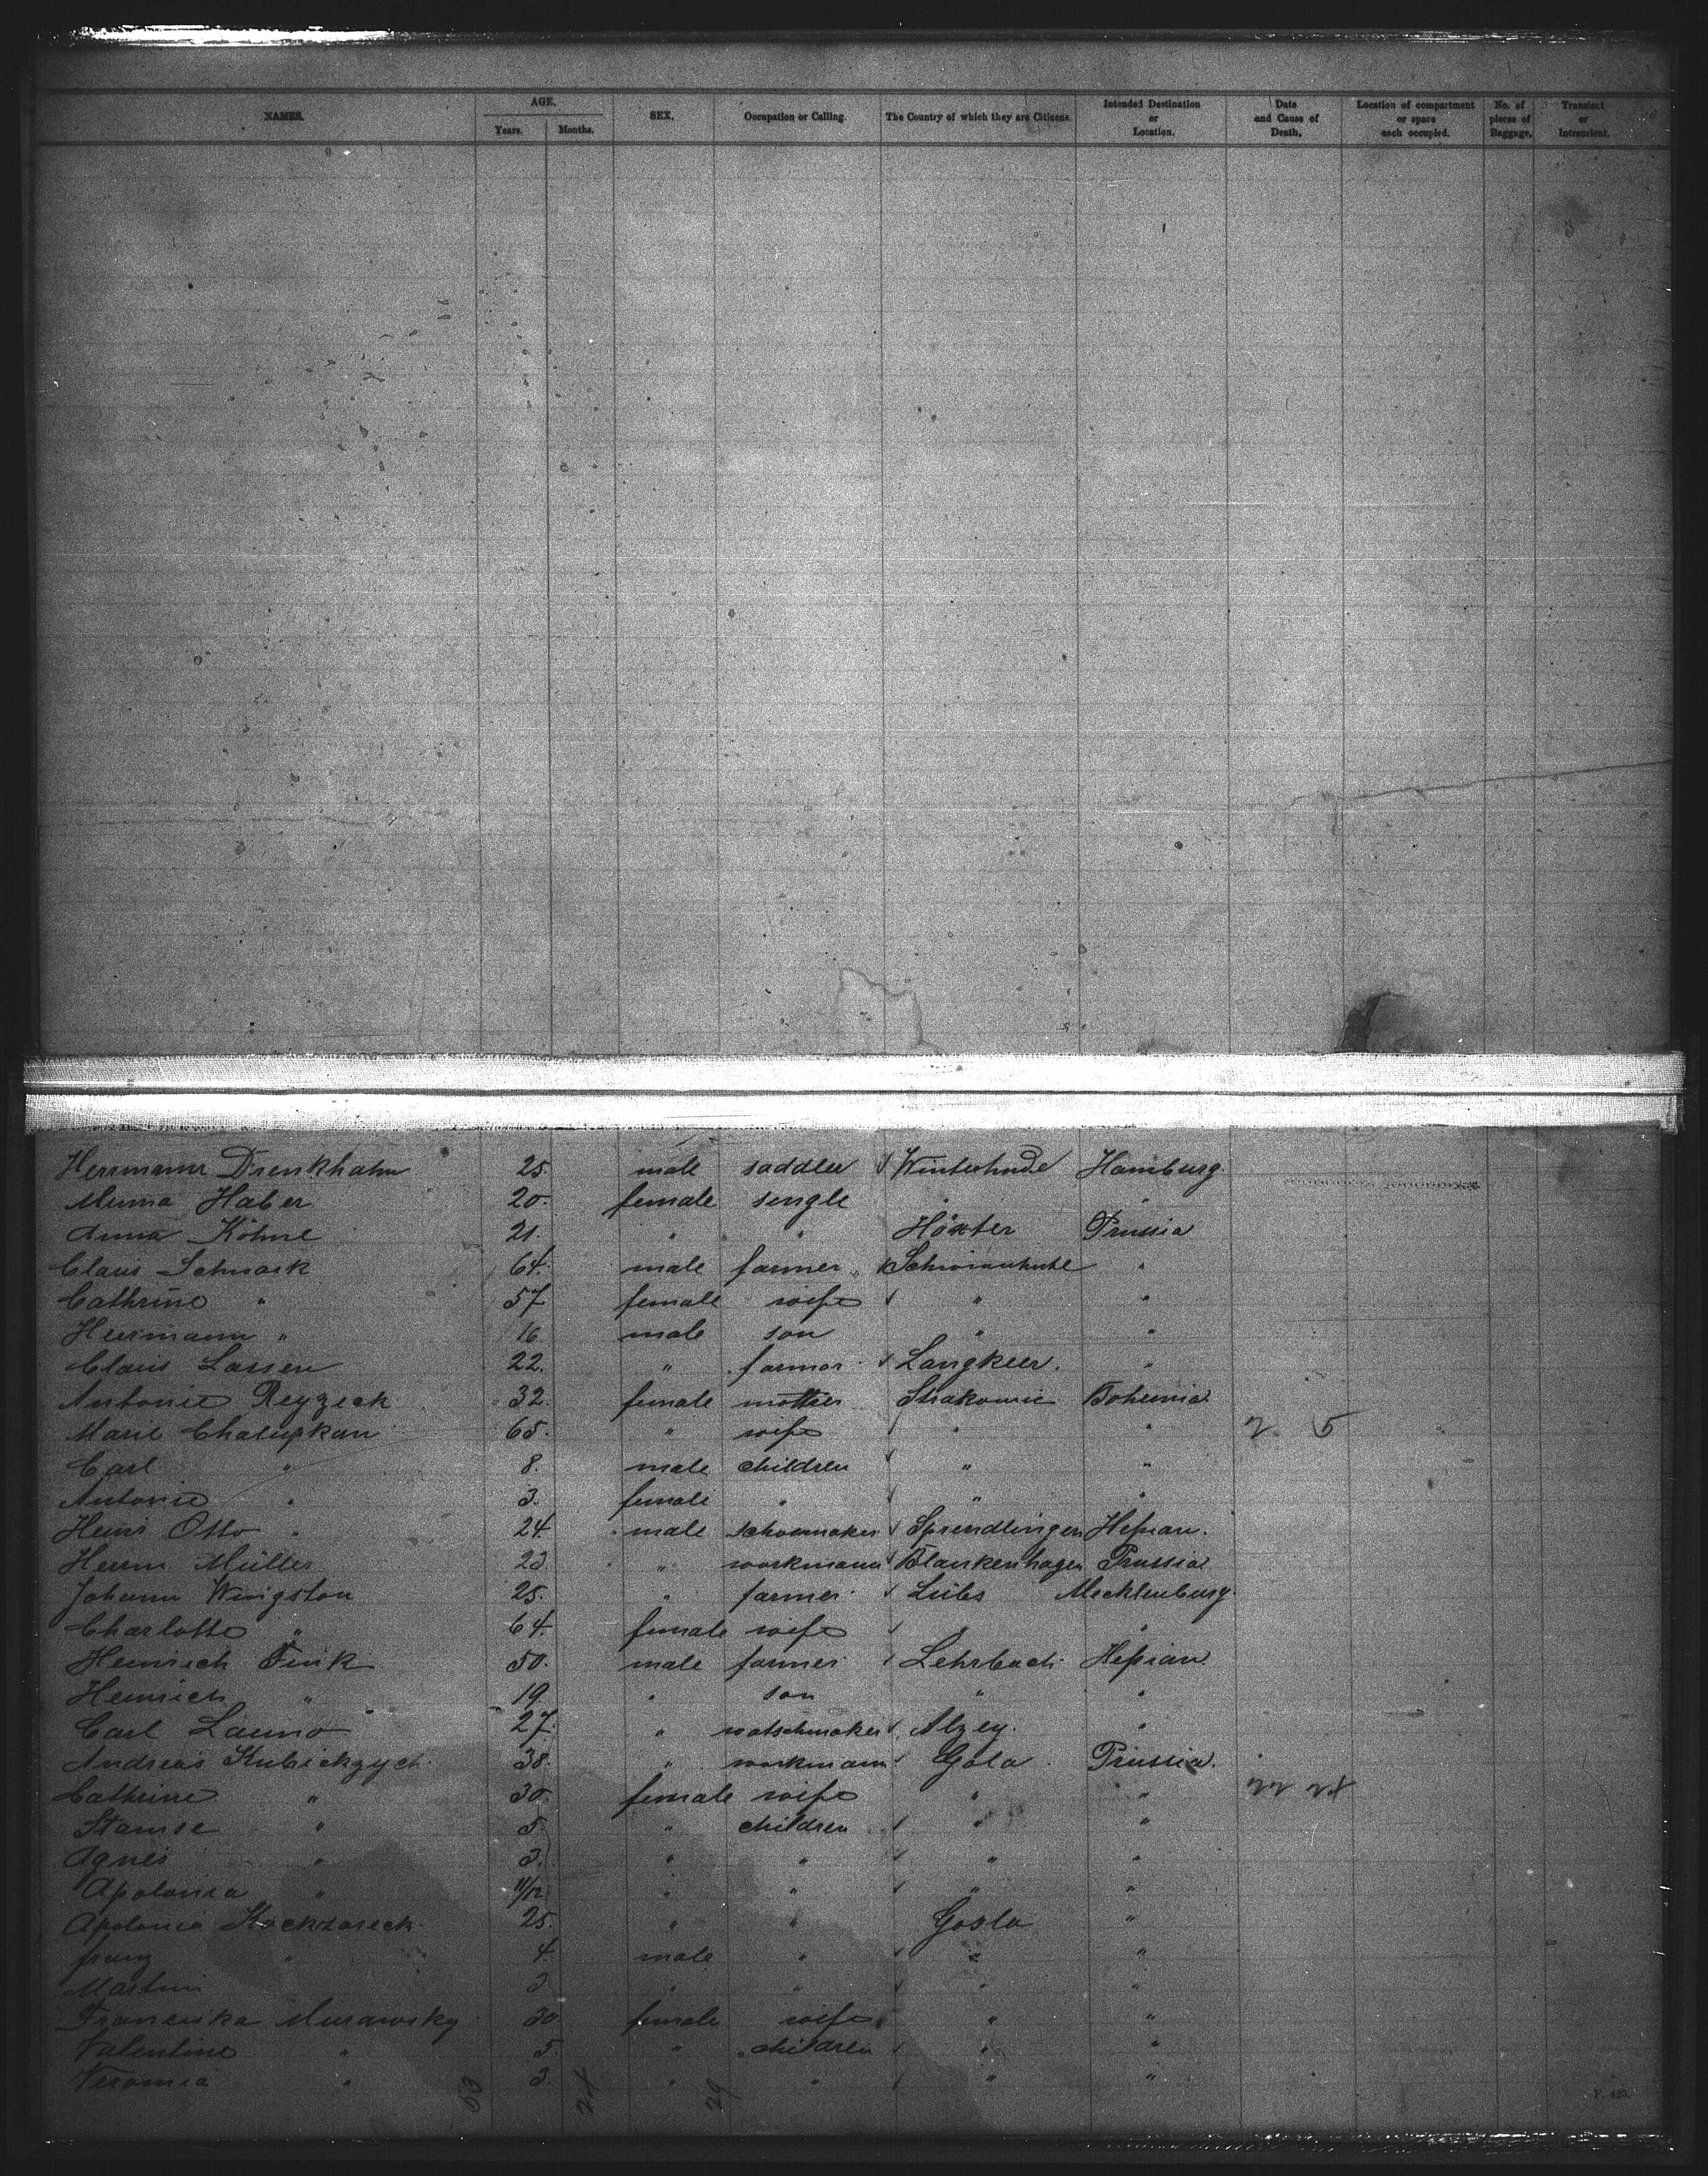 NAMES. AGE. Years. Months. SEX. Occupation or Calling. The Country of which they are Citizens. Intended Destination or Location. Date and Cause of Death. Location of compartment or space each occupied. No. of pieces of Baggage. Transient or Intransient.
Herrmann Drenkhahn 25. male saddler Winterhude Hamburg.
Minna Haber 20. female single " "
Anna Köhne 21. " " Höxter Prussia
Claus Schnack 64. male farmer "
Cathrine " 57 female wife " "
Herrmann " 16 male son " "
Claus Lassen 22. " farmer Langkeer. "
Antonie Reyzeck 32. female mother Strakowic Bohemia
Marie Chalupkan 65. " wife " " 2 5
Carl " 8. male children " "
Antonie " 3. female " " "
Heinr Otto 24. male schoemaker Sprendlingen Hessian.
Herm Müller 23. " workmann Blankenhagen Prussia
Johann Wingston 25. " farmer Lübs Mecklenburg.
Charlotte " 64. female wife " "
Heinrich Fink 50. male farmer Lehrbach Hessian.
Heinrich " 19. " son " "
Carl Launo 27. " watschmaker Alzey. "
Andreas Kubickzych 38. " workmann Gola Prussia.
Cathrine " 30. female wife " " 22 24
" 5. " children " "
Agnes " 3. " " " "
Apolonia " 11/12 " " " "
Apolonia 25. " " Gosla "
franz " 4. male " " "
Martin " " " "
Franciska Murawsky 30. female wife " "
Valentine " 5. " children " "
Veronia " 3. " " " "
53 24 29